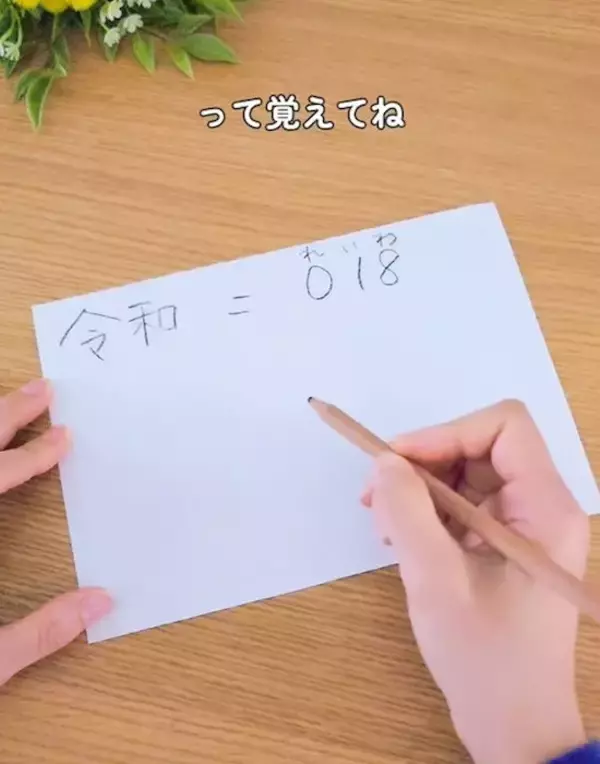 って覚えてね
れいわ
令和 = 018